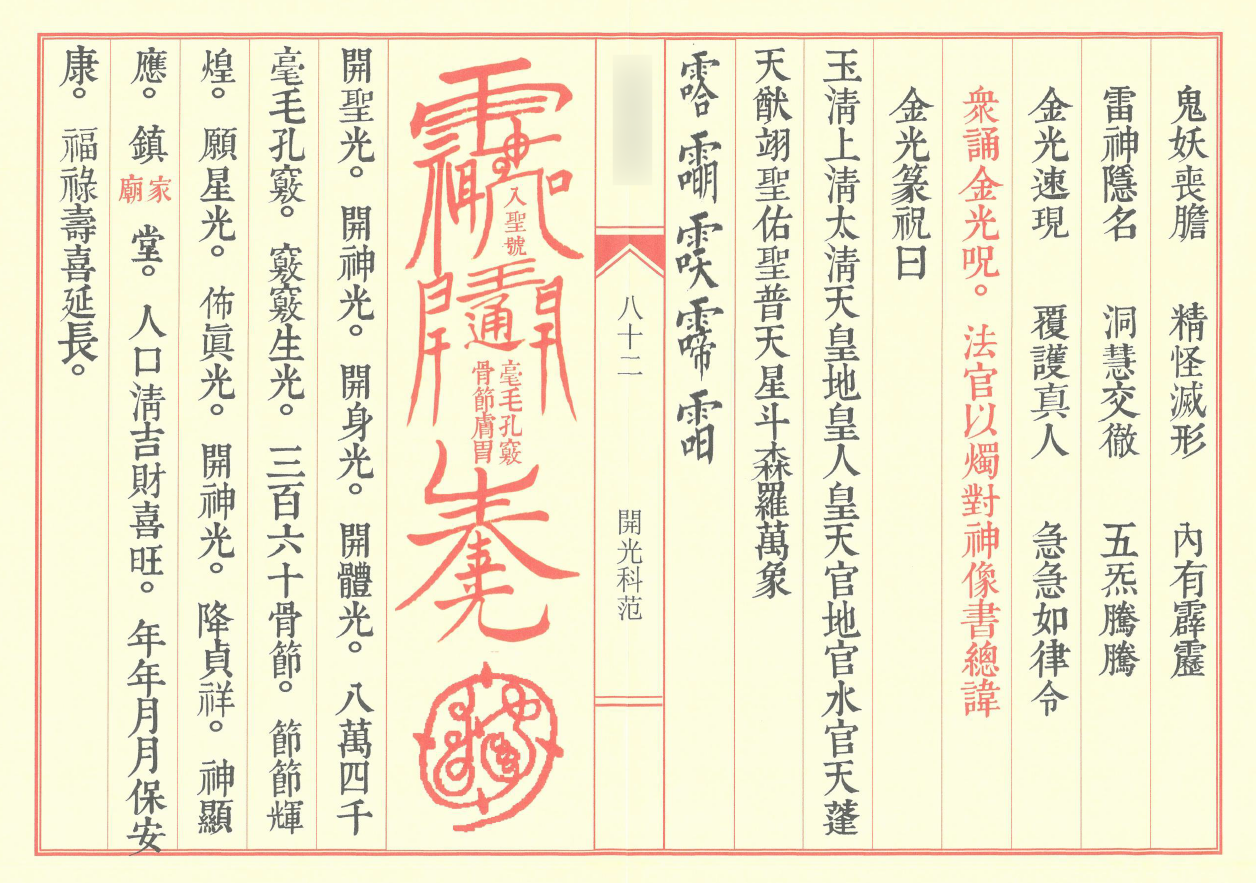 鬼妖喪膽　精怪滅形　內有霹靂
雷神隱名　洞慧交徹　五炁騰騰
金光速現　覆護真人　急急如律令
衆誦金光呪。法官以燭對神像書總諱
金光篆祝曰
玉淸上淸太淸天皇地皇人皇天官地官水官天蓬
天猷翊聖佑聖普天星斗森羅萬象
八十二
開光科范
入聖號
通
毫毛孔竅
骨節膚胃
開聖光。開神光。開身光。開體光。八萬四千
毫毛孔竅。竅竅生光。三百六十骨節。節節輝
煌。願星光。佈眞光。開神光。降貞祥。神顯
應。鎮家廟堂。人口淸吉財喜旺。年年月月保安
康。福祿壽喜延長。